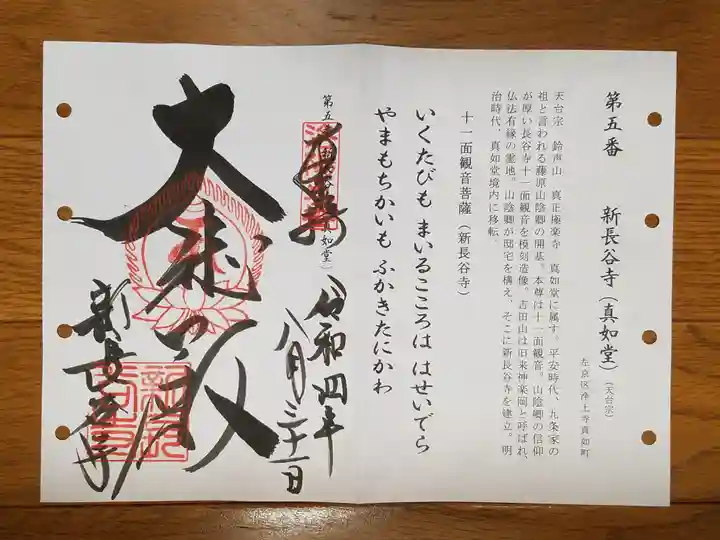 第五番　新長谷寺（真如堂）（天台宗）
左京区浄土寺真如町
天台宗　鈴声山　真正極楽寺　真如堂に属す。平安時代、九条家の
祖と言われる藤原山陰卿の開基。本尊は十一面観音。山陰卿の信仰
が厚い長谷寺十一面観音を模刻造像。吉田山は旧来神楽岡と呼ばれ、
仏法有縁の霊地。山陰卿が邸宅を構え、そこに新長谷寺を建立。明
治時代、真如堂境内に移転。
十一面観音菩薩（新長谷寺）
いくたびも まいるこころは はせいでら
やまもちかいも ふかきたにかわ
奉拝
令和四年
八月三十一日
大悲殿
新長谷寺